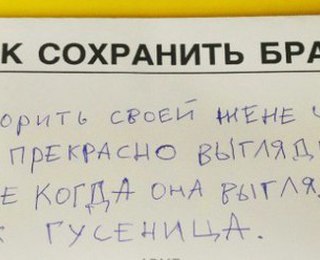 К СОХРАНИТЬ БРА
ОРИТЬ СВОЕЙ ЖЕНЕ Ч
ПРЕКРАСНО ВЫГЛЯД
Е КОГДА ОНА ВЫГЛЯ
ГУСЕНИЦА.